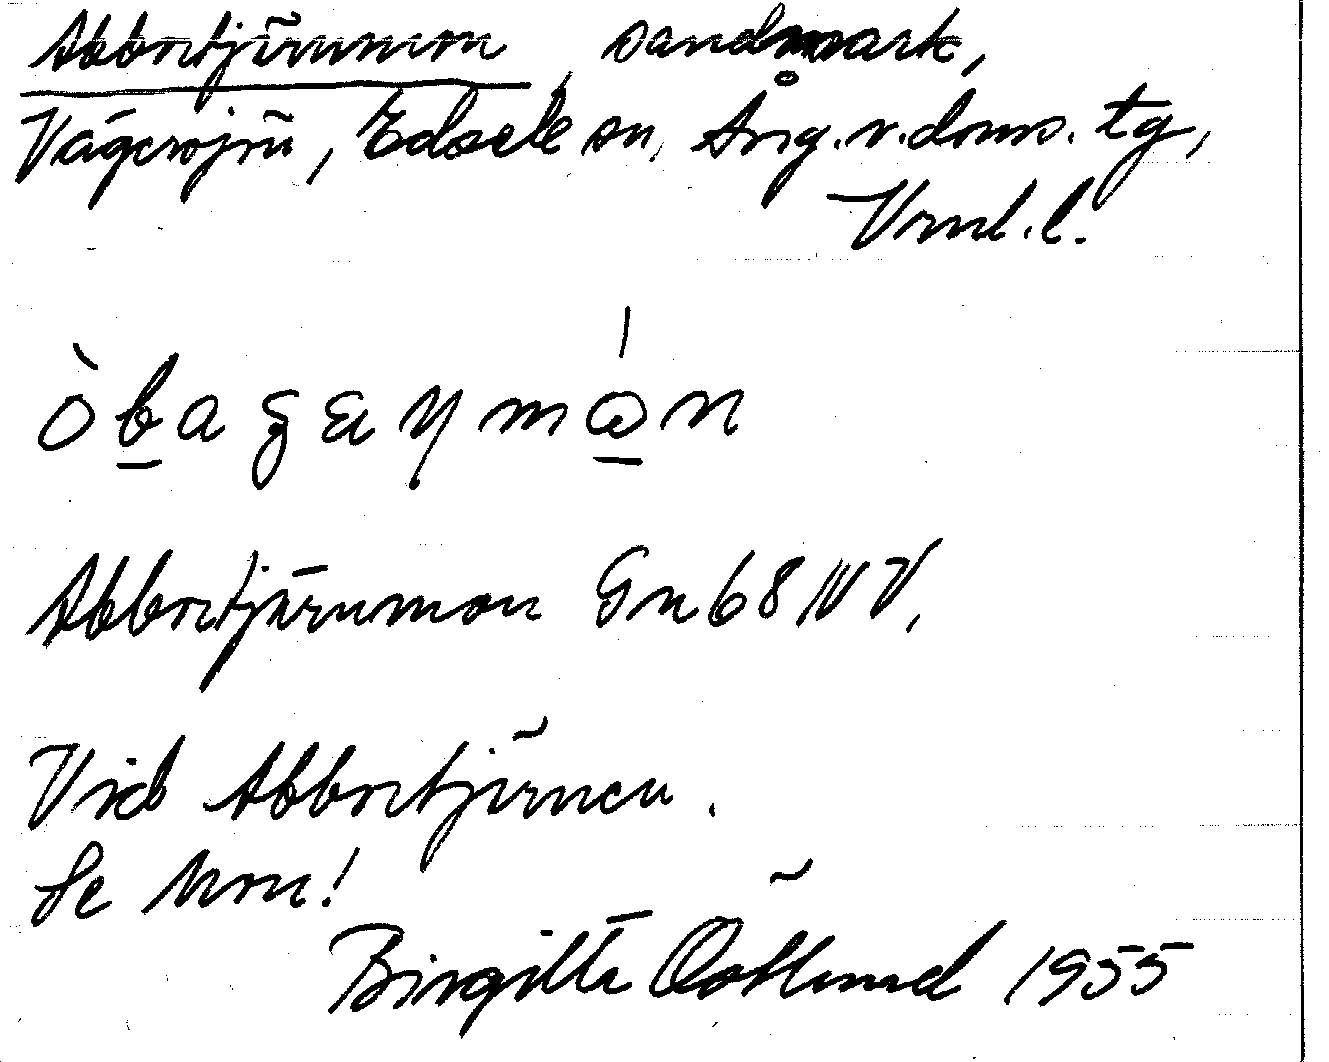 Abborrtjärnmon, sandmark,
Vågersjön, Edsele sn, Ång. v. doms. tg,
Vrnl. l.
Abborrtjärnmon Gn 68 NV,
Vid Abborrtjärnen.
Se Mon!
Birgitta Östlund 1955